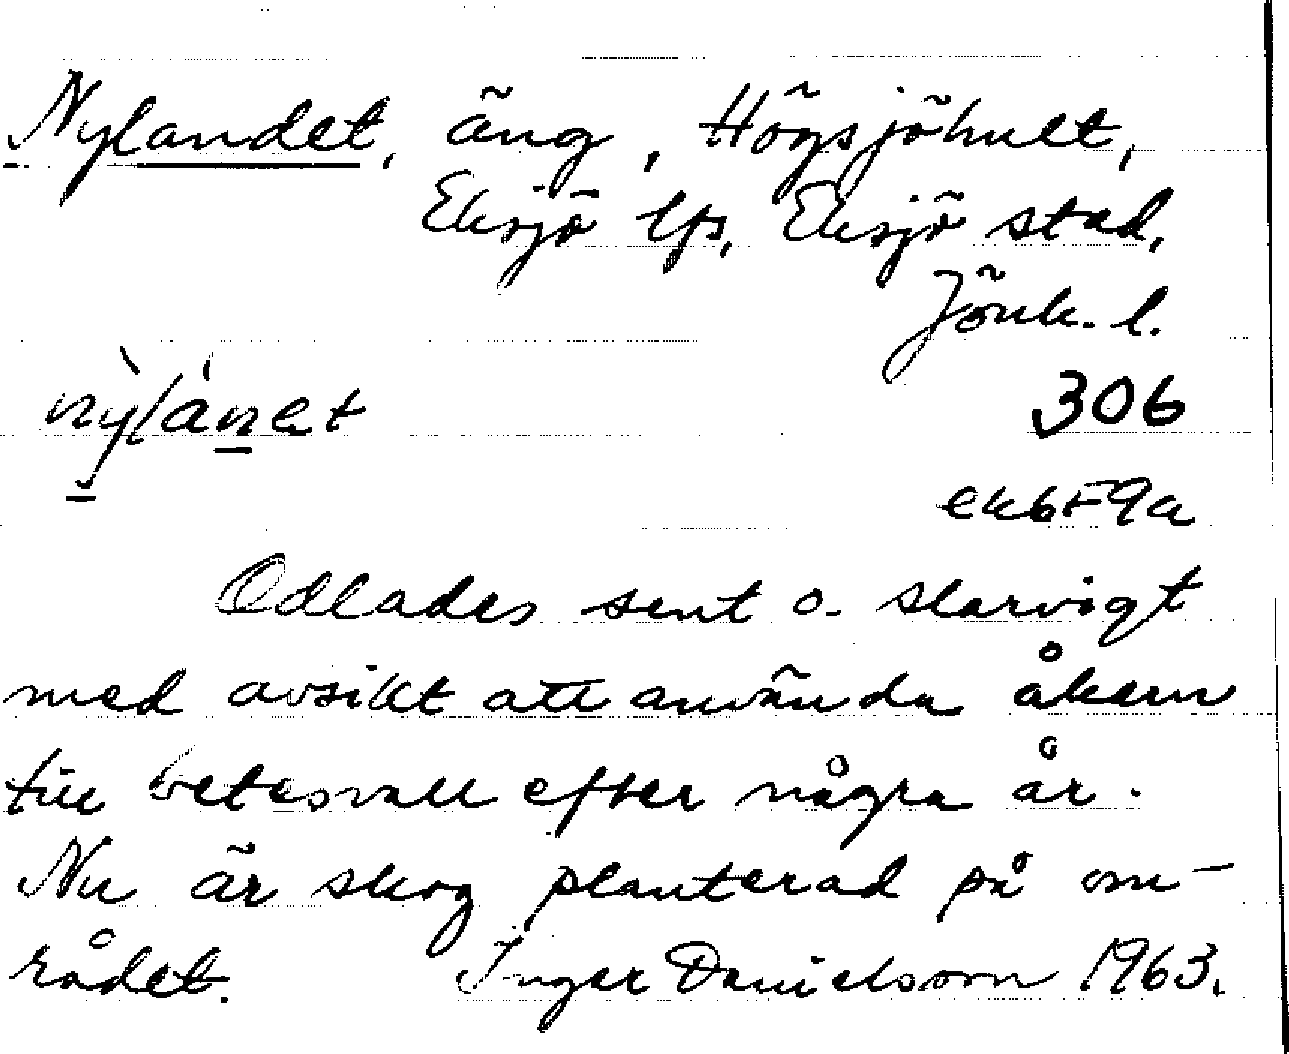 Nylandet, äng, Högsjöhult,
Eksjö lfs, Eksjö stad,
Jönk. l.
nỳlánet
306
ek6F9a
Odlades sent o. slarvigt
med avsikt att använda åkern
till betesvall efter några år.
Nu är skog planterad på om-
rådet. Inger Danielsson 1963.